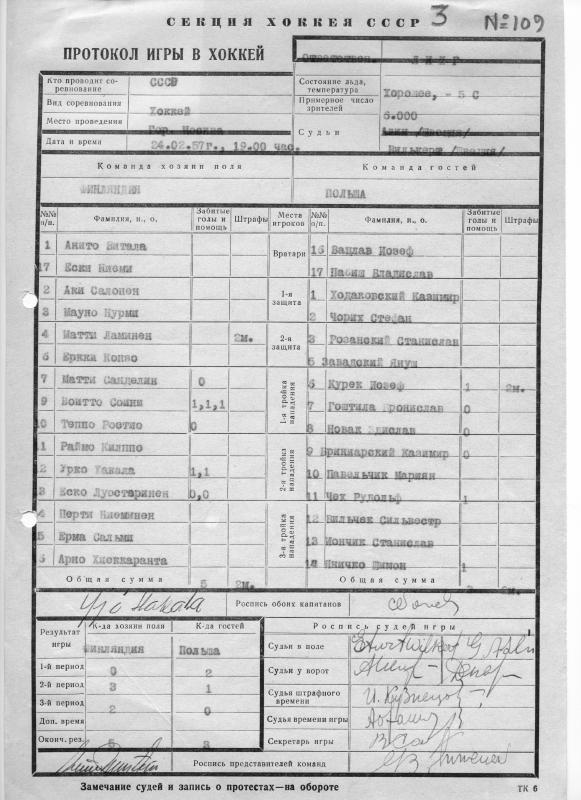 СЕКЦИЯ ХОККЕЯ СССР 3 №109
ПРОТОКОЛ ИГРЫ В ХОККЕЙ
Ответственн.
Кто проводит соревнование СССР
Состояние льда, температура Хорошее, - 5 С
Вид соревнования Хоккей
Примерное число зрителей 6.000
Место проведения Гор. Москва
Судьи
Дата и время 24.02.57г., 19.00 час.
Команда хозяин поля Команда гостей
ФИНЛЯНДИЯ ПОЛЬША
№№ п/п. Фамилия, и., о. Забитые голы и помощь Штрафы Места игроков №№ п/п. Фамилия, и., о. Забитые голы и помощь Штрафы
1 Вратари 16 Вацлав Иозеф
17 Ески Ниеми 17 Владислав
2 Аки Салонен 1-я защита 1 Ходаковский Казимир
3 Мауно Нурми 2 Чорих Стефан
4 Матти Ламинен 2м. 2-я защита 3 Розанский Станислав
6 Еркки 5 Завадский Януш
7 Матти Санделин 0 1-я тройка нападения 6 Курек Иозеф 1 2м.
9 Воитто Соини 1,1,1 7 Гоштила Бронислав 0
10 Теппо Ростио 0 8 Новак Здислав 0
11 Раймо Килппо 2-я тройка нападения 9 Казимир 0
12 Урко 1,1 10 Павельчик Мариян
3 Еско Луостаринен 0,0 11 Чех Рудольф 1
4 Перти Ниеминен 3-я тройка нападения 12 Вильчек Сильвестр
5 Ерма Сальми 13 Йончик Станислав
6 Арно Хиеккаранта 14 Яничко Шимон 1
Общая сумма 5 2м. Общая сумма 3 2м.
Роспись обоих капитанов
Результат игры К-да хозяин поля К-да гостей Роспись судей игры
Финляндия Польша Судьи в поле
1-й период 0 2 Судьи у ворот
2-й период 3 1 Судьи штрафного времени И. Кузнецов
3-й период 2 0
Доп. время Судьи времени игры
Оконч. рез. 5 3 Секретарь игры
Роспись представителей команд
Замечание судей и запись о протестах—на обороте ТК 6